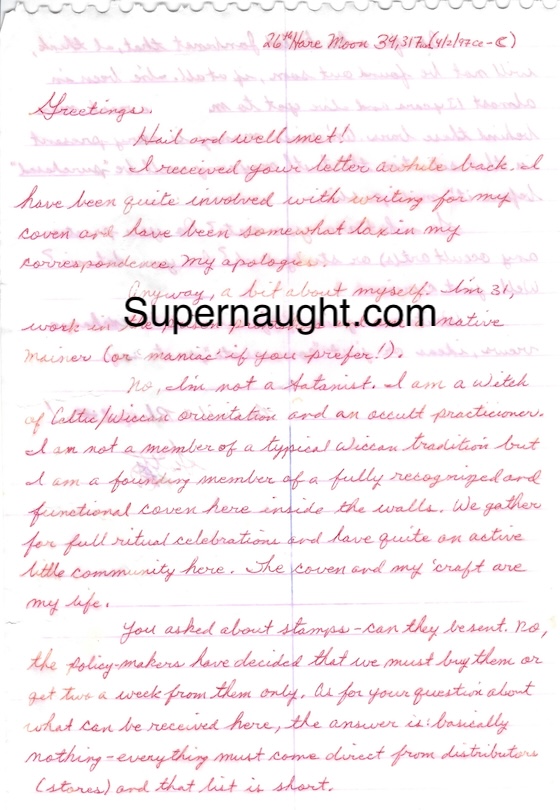 26th Hare Moon 39,317 (4/2/97 CE-C)
Greetings.
Hail and well met!
I received your letter awhile back. I
have been quite involved with writing for my
coven and have been somewhat lax in my
correspondence. My apologies.
Anyway, a bit about myself. I'm 31,
Supernaught.com
work in the native
Mainer (or 'maniac' if you prefer!).
No, I'm not a Satanist. I am a Witch
of Celtic/Wiccan orientation and an occult practicioner.
I am not a member of a typical Wiccan tradition but
I am a founding member of a fully recognized and
functional coven here inside the walls. We gather
for full ritual celebrations and have quite an active
little community here. The coven and my 'craft are
my life.
You asked about stamps - can they be sent. No,
the policy-makers have decided that we must buy them or
get two a week from them only. As for your question about
what can be received here, the answer is: basically
nothing - everything must come direct from distributors
(stores) and that list is short.